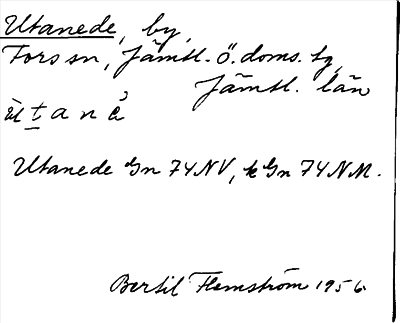 Utanede, by,
Fors sn, Jämtl. ö. doms. tg,
Jämtl. län
Utanede Gn 74NV, k Gn 74NM.
Bertil Flemström 1956